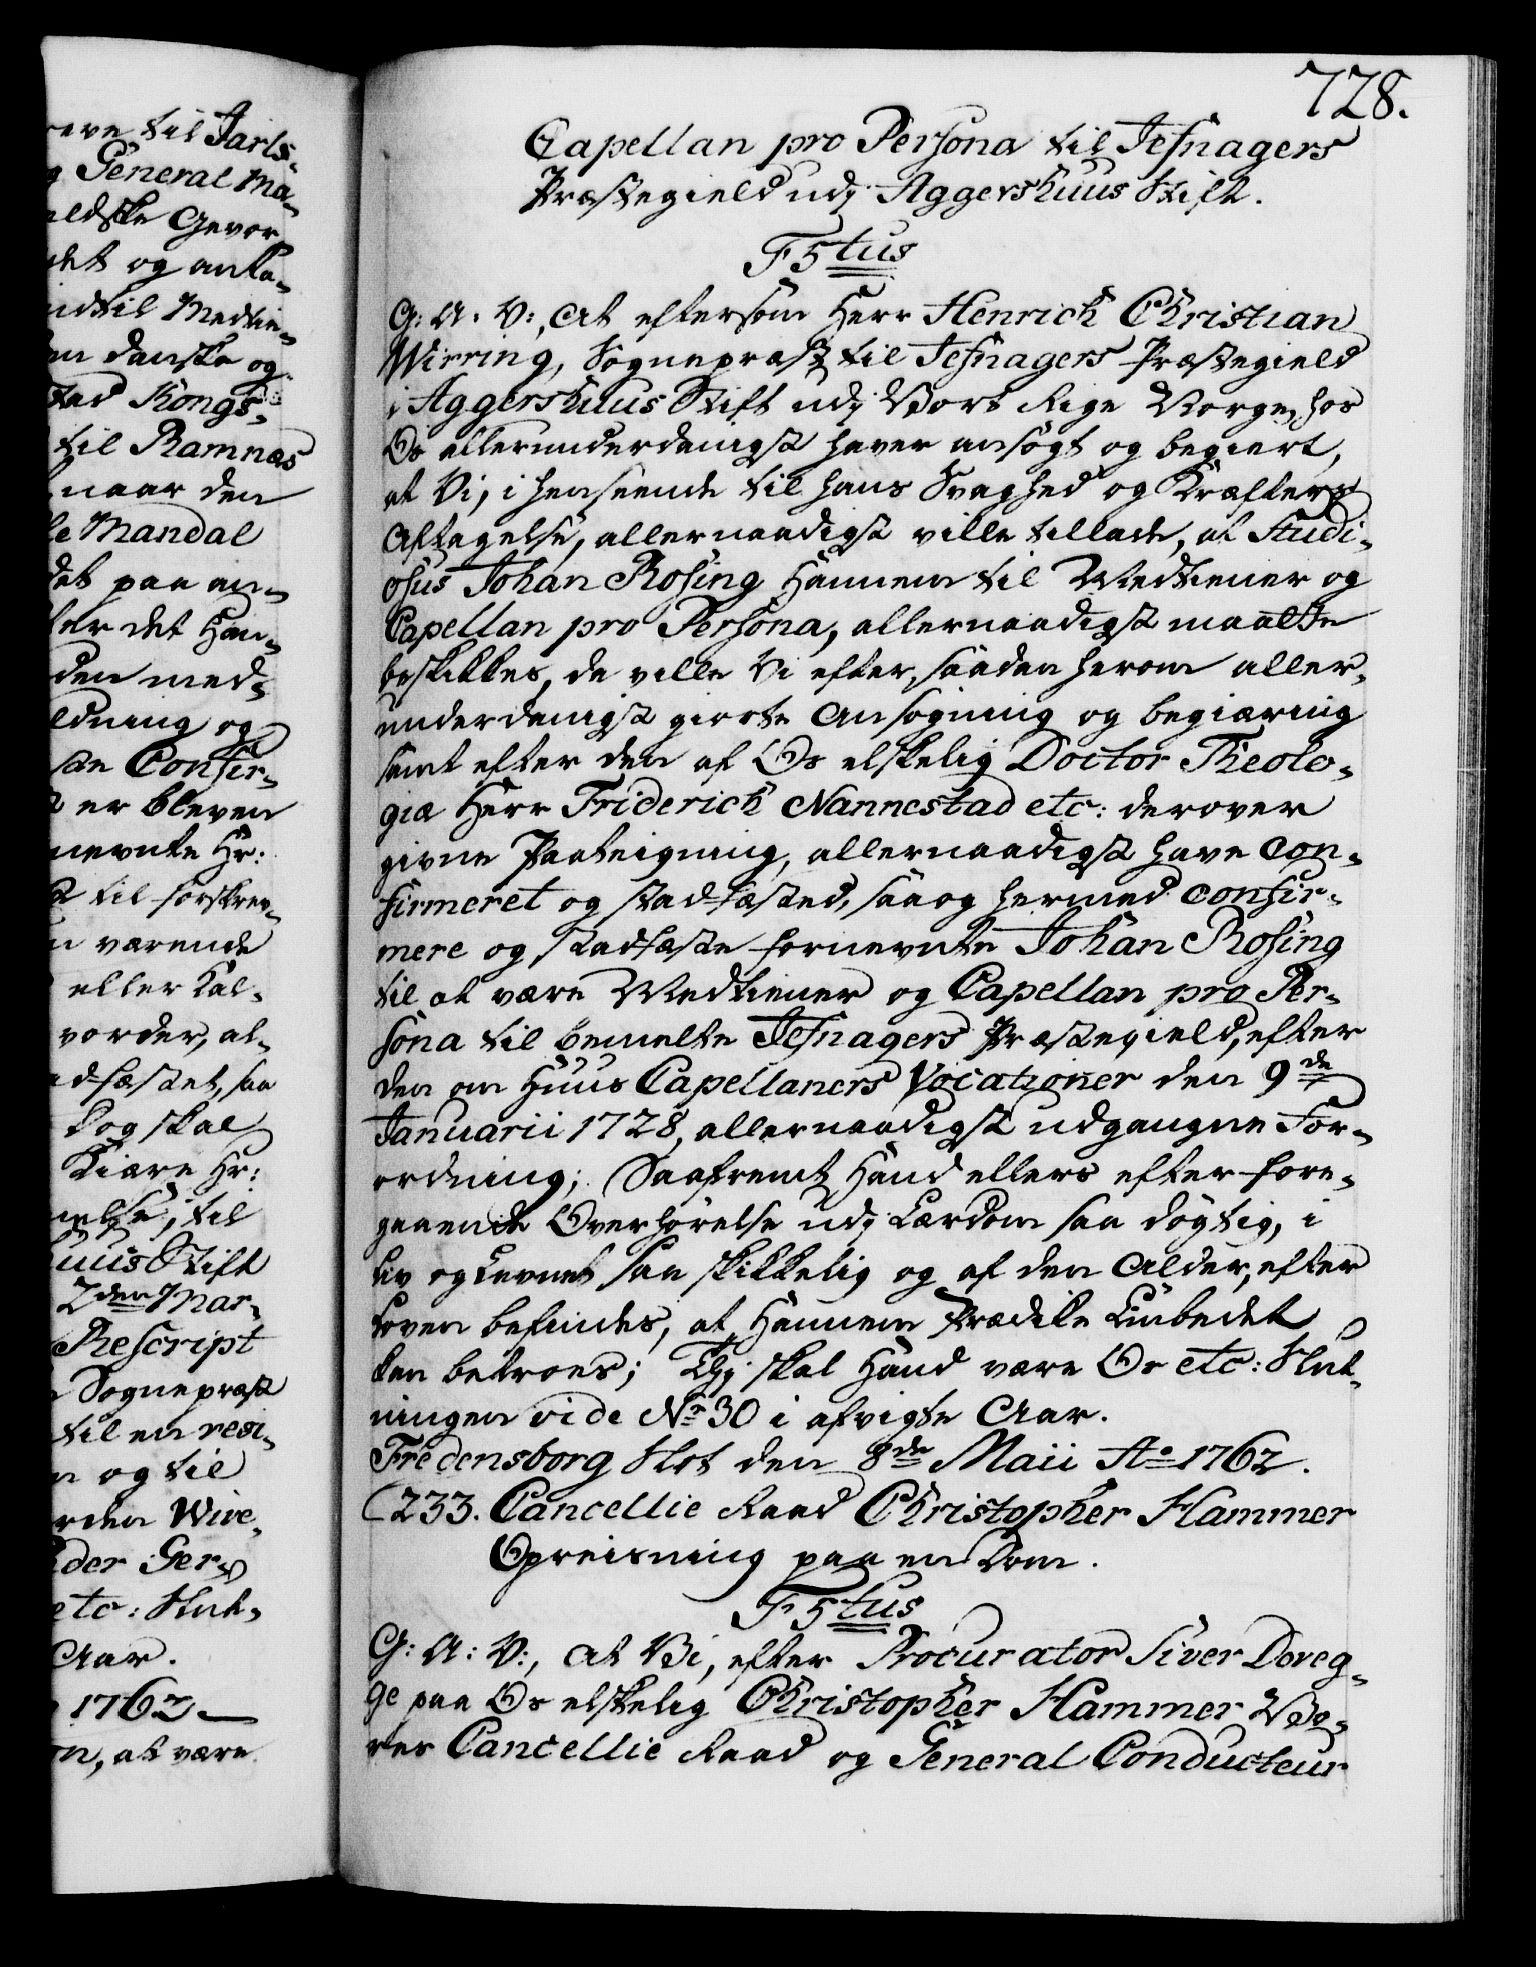 reve til Jarls-
g General Ma-
aldske Gevor-
det og anko-
indtil Medtie-
en danske og
stad Kongs-
til Ramnæs
naar den
le Mandal
det paa an-
ler det Han-
den med-
eldning og
ste Confir-
t er bleven
nevnte Hr:
t til forskrev-
n værende
eller Kal-
vorder, at-
adfæstet, saa
dog skal
Kiære Hr:
melse, til
huus Stift
2den Mar-
Rescript
Sognepræst
til en resi-
n og til
rden Wire-
der Ger-
etc: Slut-
Aar.
1762
on, at være
728.
Capellan pro Persona til Jefnagers
Præstegield udj Aggershuus Stift.
F5tus
G: A: V:, At eftersom Herr Henrich Christian
Wirring, Sognepræst til Jefnagers Præstegield
i Aggershuus Stift udj Vort Rige Norge, hos
Os allerunderdanigst haver ansøgt og begiert,
at Vi, i henseende til hans Svaghed og Kræfters
Aftagelse, allernaadigst ville tillade, at Studi-
osus Johan Rosing Hannem til Medtiener og
Capellan pro Persona, allernaadigst maatte
beskikkes, da ville Vi efter, saadan herom aller-
underdanigst giorte Ansøgning og begiæring
samt efter den af Os elskelig Doctor Theolo-
giæ Herr Friderich Nannestad etc: derover
givne Paateigning, allernaadigst have con-
firmeret og stadfæsted, saa og hermed confir-
mere og stadfæste fornevnte Johan Rosing
til at være Medtiener og Capellan pro Per-
sona til bemelte Jefnagers Præstegield, efter
den om Huus Capellaners Vocationer den 9de
Januarii 1728, allernaadigst udgangne For-
ordning; Saafremt Hand ellers efter fore-
gaaende Overhørelse udj Lærdom saa døgtig, i
Liv og Levnet saa skikkelig og af den Alder, efter
Loven befindes, at Hannem Prædike Embedet
kan betroes; Thj skal Hand være Os etc: Slut-
ningen vide No 30 i afvigte Aar.
Fredensborg Slot den 8de Maii Ao 1762.
233. Cancellie Raad Christopher Hammer
Opreisning paa en Dom.
F5tus
G: A: V:, At Vi, efter Procurator Siver Dereg-
ge paa Os elskelig Christopher Hammer Vo-
res Cancellie Raad og General Conducteur